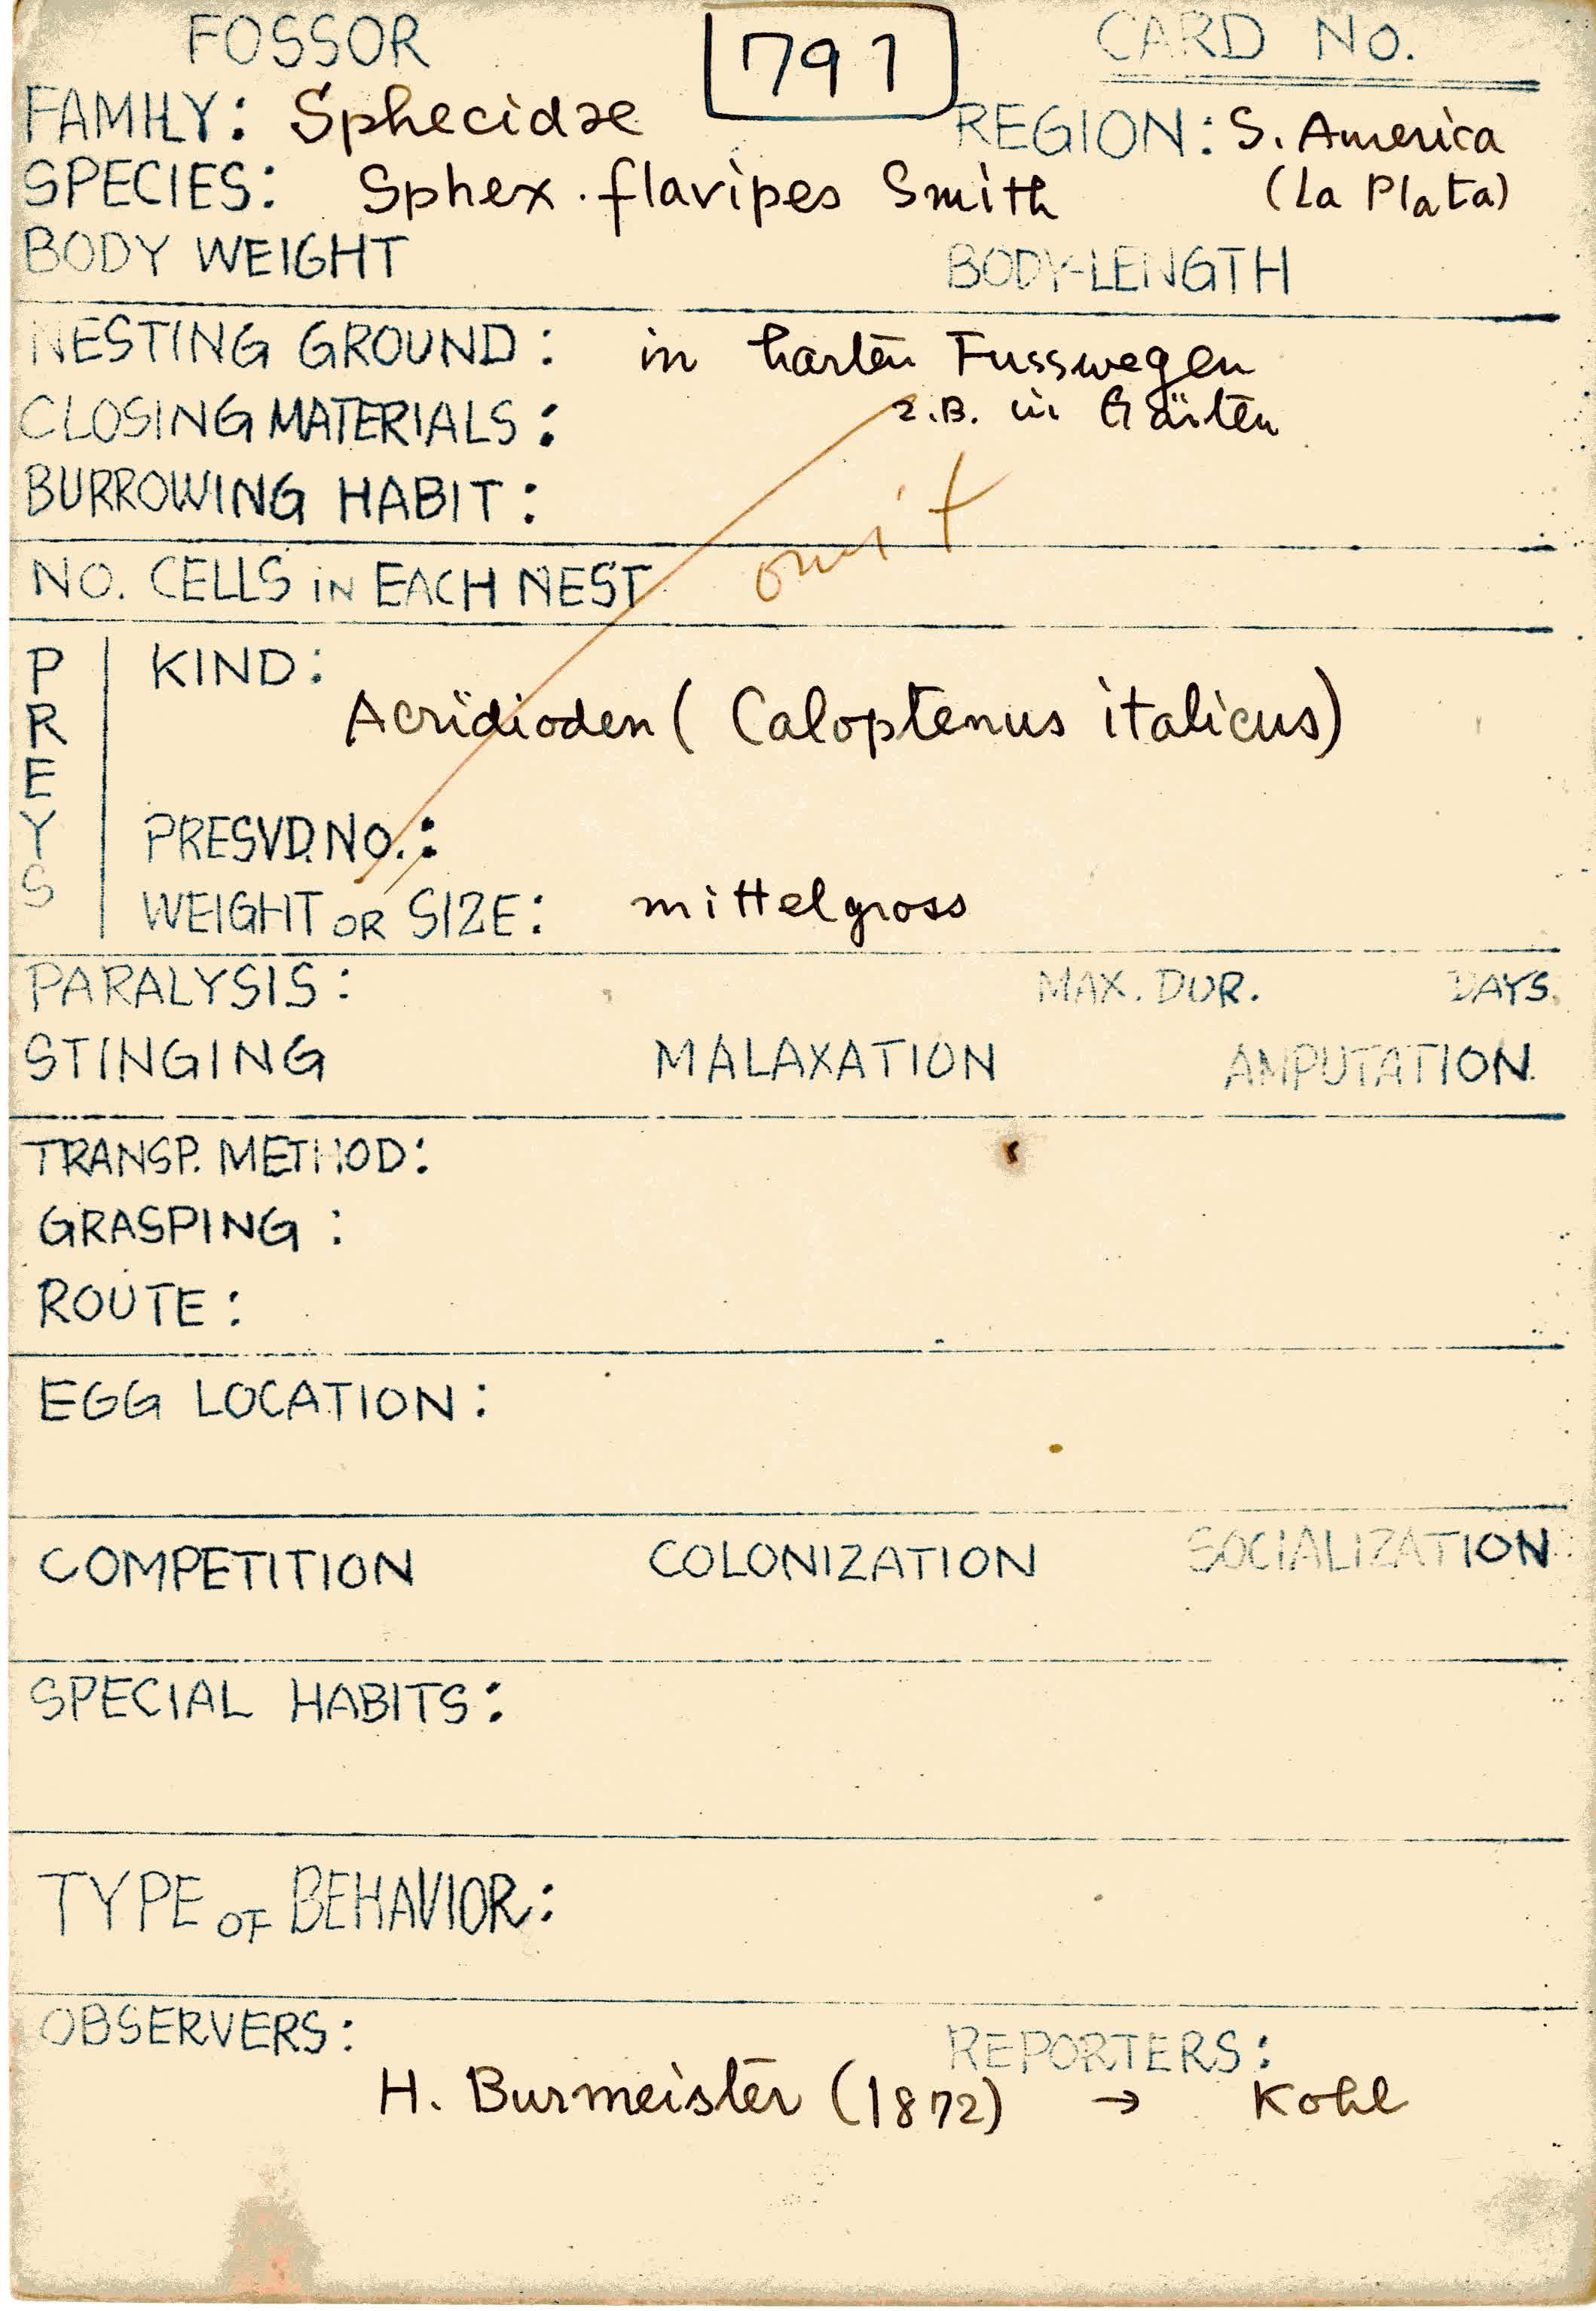 FOSSOR 791 CARD No.
FAMILY: Sphecidae REGION: S. America
SPECIES: Sphex. flavipes Smith (La Plata)
BODY WEIGHT BODY-LENGTH
NESTING GROUND: in harten Fusswegen
CLOSING MATERIALS: z.B. in Gärten
BURROWING HABIT:
omit
NO. CELLS IN EACH NEST
PREYS
KIND:
Acridioden (Caloptenus italicus)
PRESVD. NO.:
WEIGHT OR SIZE: mittelgross
PARALYSIS: MAX. DUR. DAYS.
STINGING MALAXATION AMPUTATION
TRANSP. METHOD:
GRASPING:
ROUTE:
EGG LOCATION:
COMPETITION COLONIZATION SOCIALIZATION
SPECIAL HABITS:
TYPE OF BEHAVIOR:
OBSERVERS: REPORTERS:
H. Burmeister (1872) → Kohl